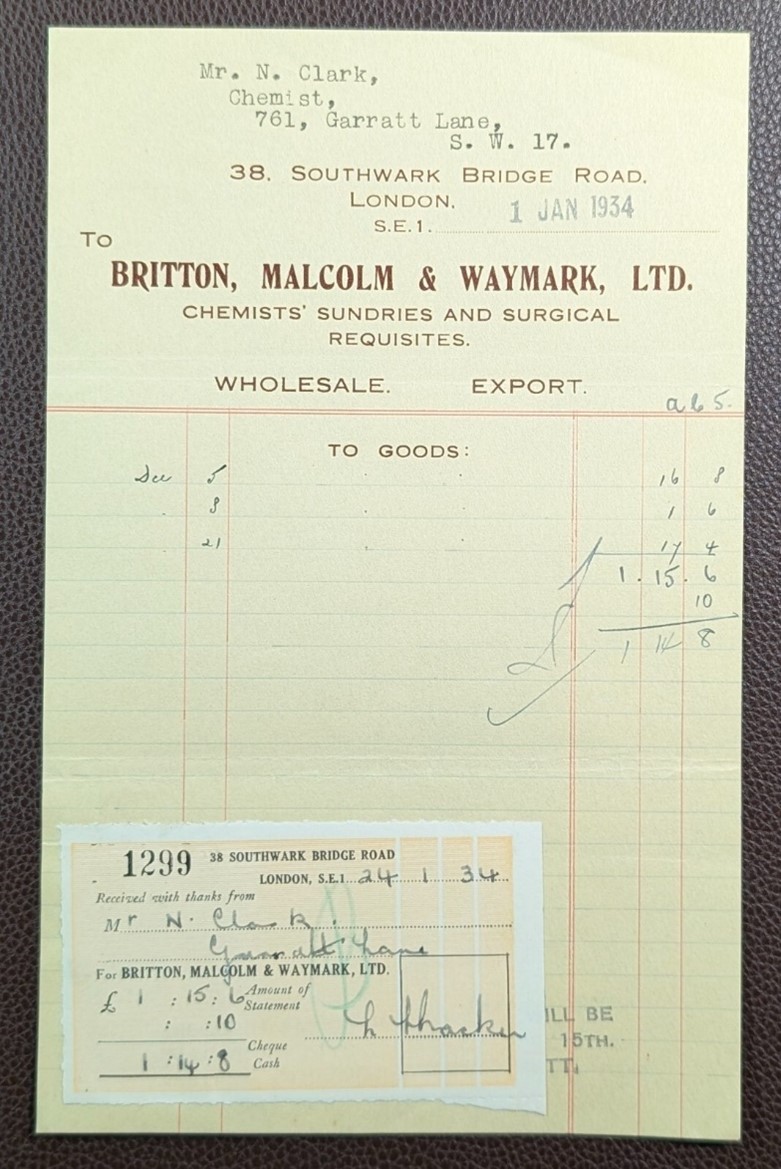 Mr. N. Clark,
Chemist,
761, Garratt Lane,
S. W. 17.
38, SOUTHWARK BRIDGE ROAD,
LONDON,
S.E.1. 1 JAN 1934
To
BRITTON, MALCOLM & WAYMARK, LTD.
CHEMISTS' SUNDRIES AND SURGICAL
REQUISITES.
WHOLESALE. EXPORT.
a b 5.
TO GOODS:
Dec 5 16 8
8 1 6
21 17 4
1. 15. 6
10
1 14 8
1299 38 SOUTHWARK BRIDGE ROAD
LONDON, S.E.1 24 1 34
Received with thanks from
Mr N. Clark.
Garratt Lane
For BRITTON, MALCOLM & WAYMARK, LTD.
£ 1 : 15 : 6 Amount of Statement
: :10
Cheque
1 : 14 : 8 Cash
ILL BE
15TH.
TT.